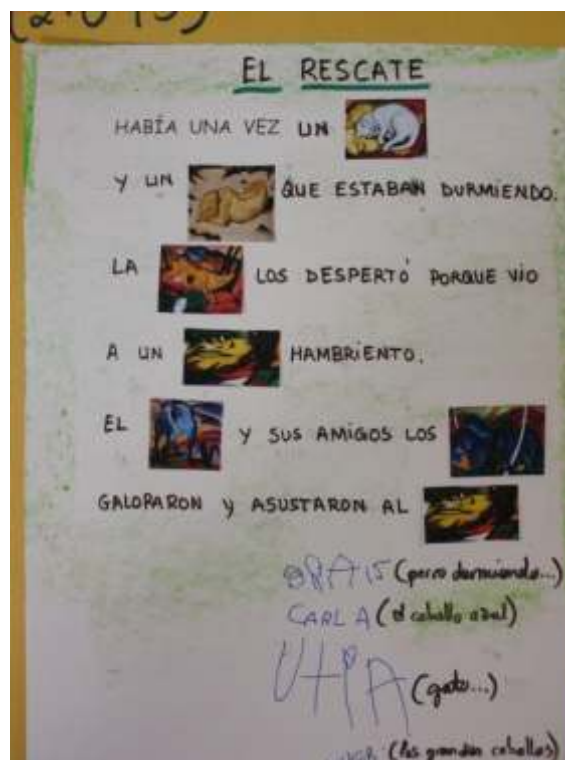 EL RESCATE
HABÍA UNA VEZ UN
Y UN QUE ESTABAN DURMIENDO.
LA LOS DESPERTÓ PORQUE VIO
A UN HAMBRIENTO.
EL Y SUS AMIGOS LOS
GALOPARON Y ASUSTARON AL
(perro durmiendo...)
CARLA (el caballo azul)
(gato...)
(los grandes caballos)